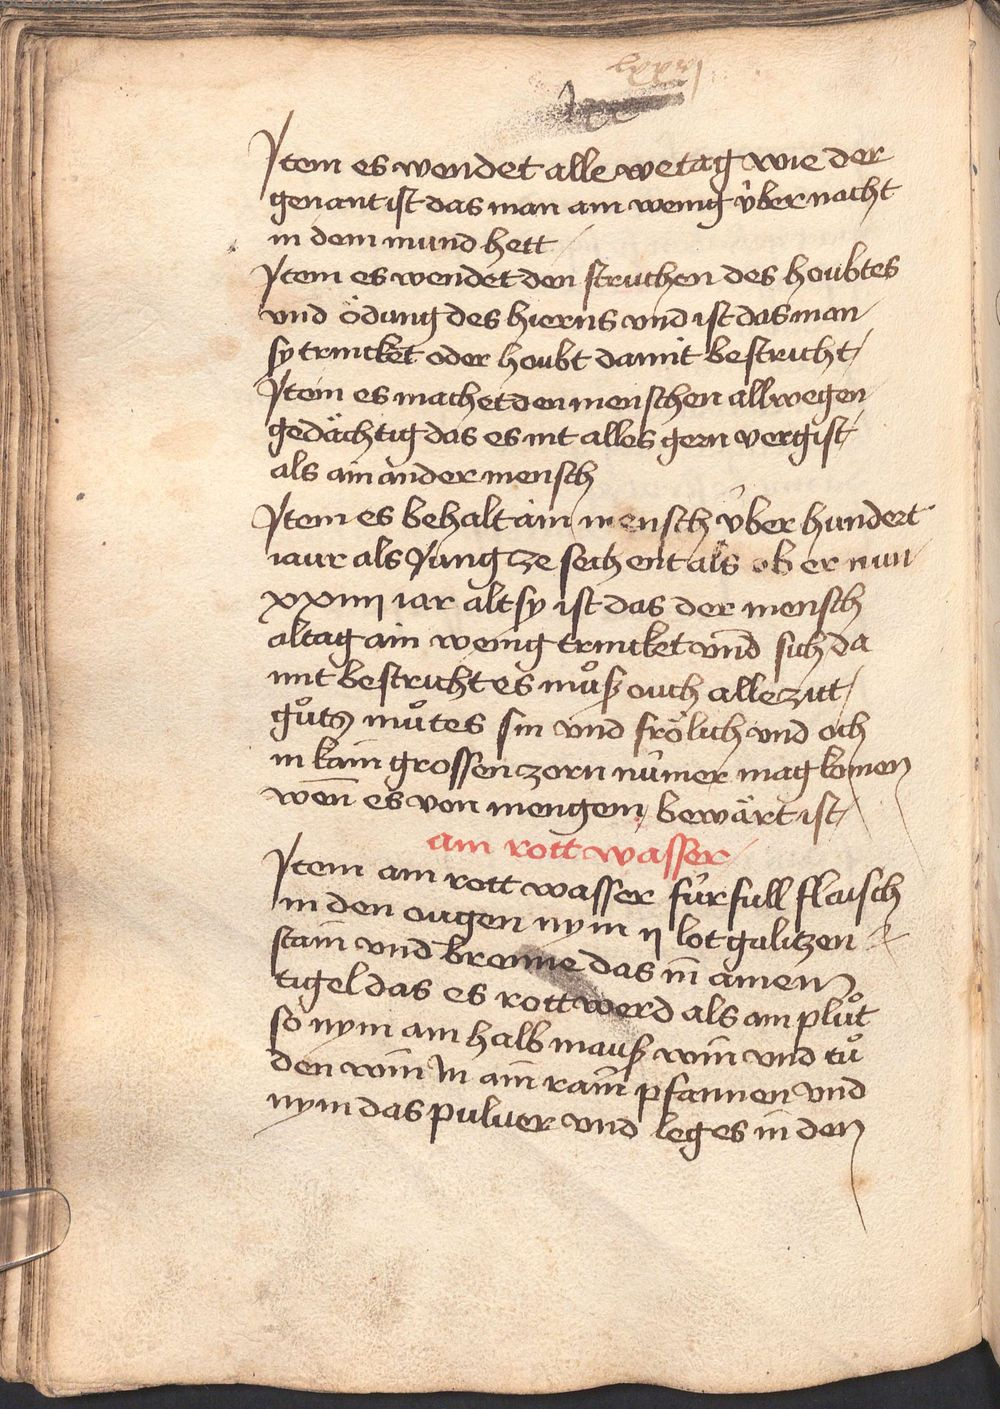 lxxvj
Jtem es wendet alle wetag wie der
genant ist das man ain wenig v̊ber nacht
in dem mund hett
Jtem es wendet den struchen des houbtes
vnd ödung des hierns vnd ist das man
sy trincket oder houbt damit bestricht
Jtem es machet den menschen allwegen
gedächtig das es nit alles gern vergist
als ain ander mensch
Jtem es behalt ain mensch v̊ber hundert
iaur als Jung ze sechent als ob er nun
xxiiij iar alt sy ist das der mensch
altag ain wenig trincket vnd sich da
mit bestricht es můß ouch alle zitt
gůtz můtes sin vnd frölich vnd och
in kain grossen zorn nu̍mer mag komen
wen̄ es von mengem bewärt ist
ain rott wasser
Jtem ain rott wasser fu̍r full flaisch
in den ougen nym ij lot galitzen
stain vnd brenne das in ainem
tigel das es rott werd als ain plůt
so nym ain halb mauß win vnd tů
den win In ain rain pfannen vnd
nym das puluer vnd leg es in den